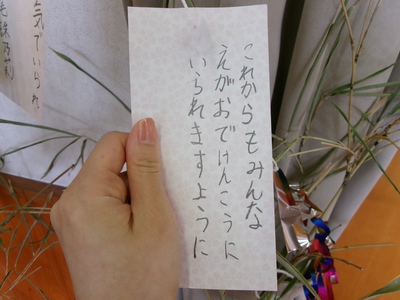 これからもみんな
えがおでけんこうに
いられますように
気でいられ